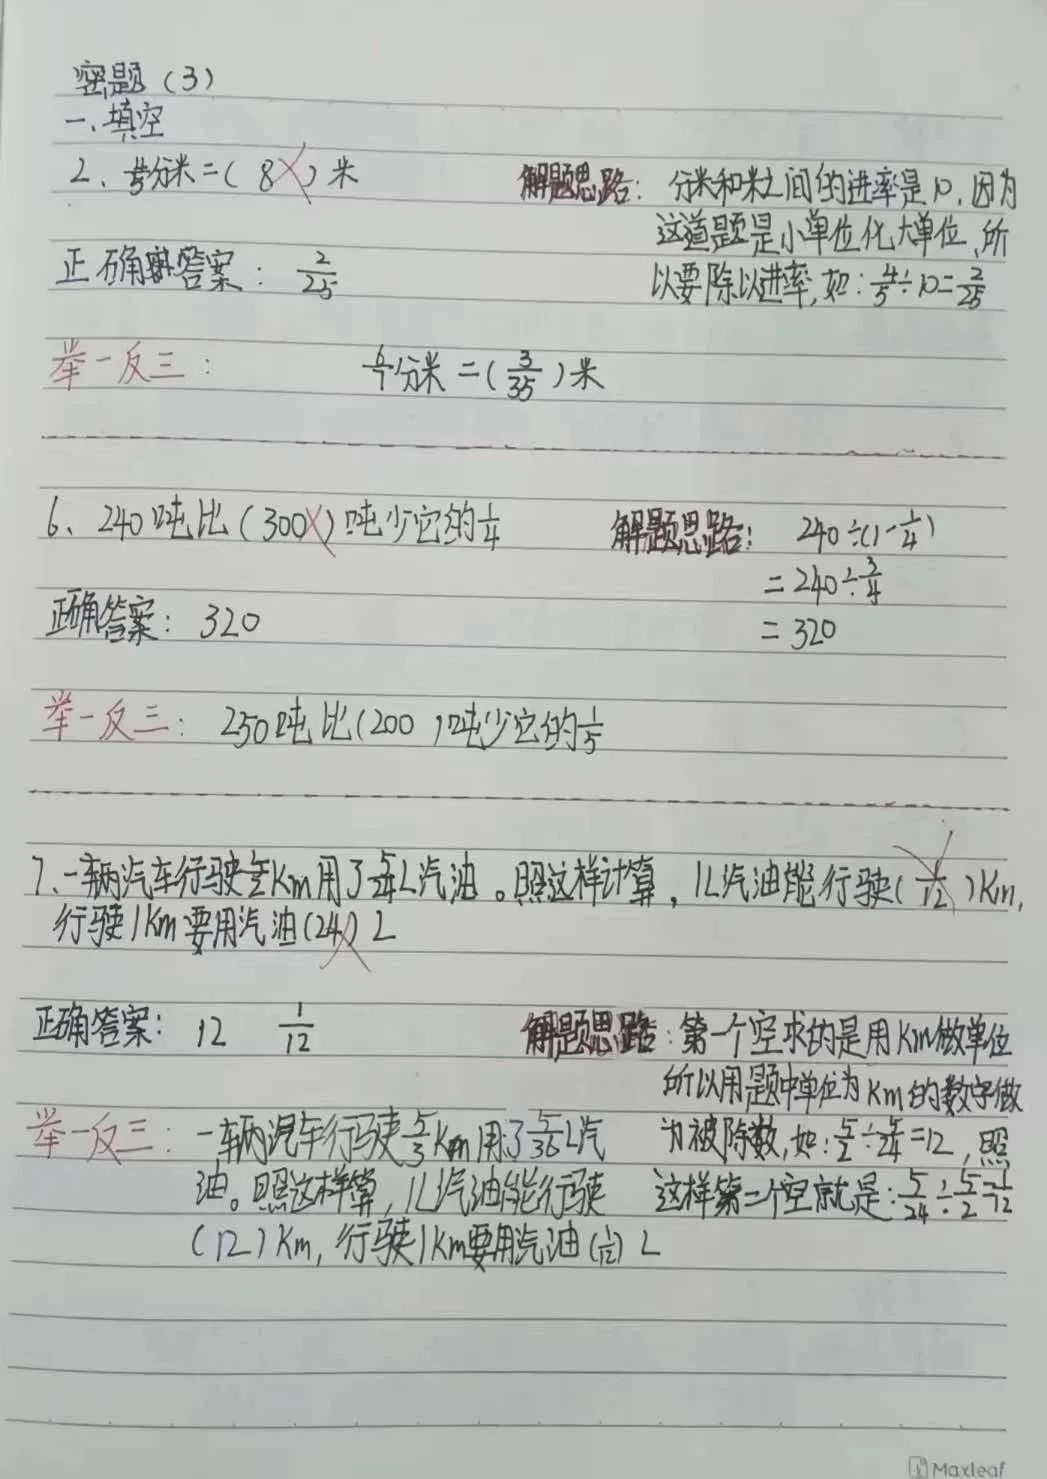 密题（3）
一、填空
2、4/5分米=（8）米
解题思路：分米和米之间的进率是10，因为
这道题是小单位化大单位，所
以要除以进率，如：4/5÷10=2/25
正确答案：2/25
举一反三：6/7分米=（3/35）米
6、240吨比（300）吨少它的1/4
解题思路：240÷(1-1/4)
=240÷3/4
=320
正确答案：320
举一反三：250吨比（200）吨少它的1/5
7.一辆汽车行驶5/2Km用了5/24L汽油。照这样计算，1L汽油能行驶（1/12）Km，
行驶1Km要用汽油（24）L
正确答案：12 1/12
解题思路：第一个空求的是用Km做单位
所以用题中单位为Km的数字做
为被除数，如：5/2÷5/24=12，照
这样第二个空就是：5/24÷5/2=1/12
举一反三：一辆汽车行驶5/3Km用了5/36L汽
油。照这样算，1L汽油能行驶
（12）Km，行驶1Km要用汽油（1/12）L
Maxleaf